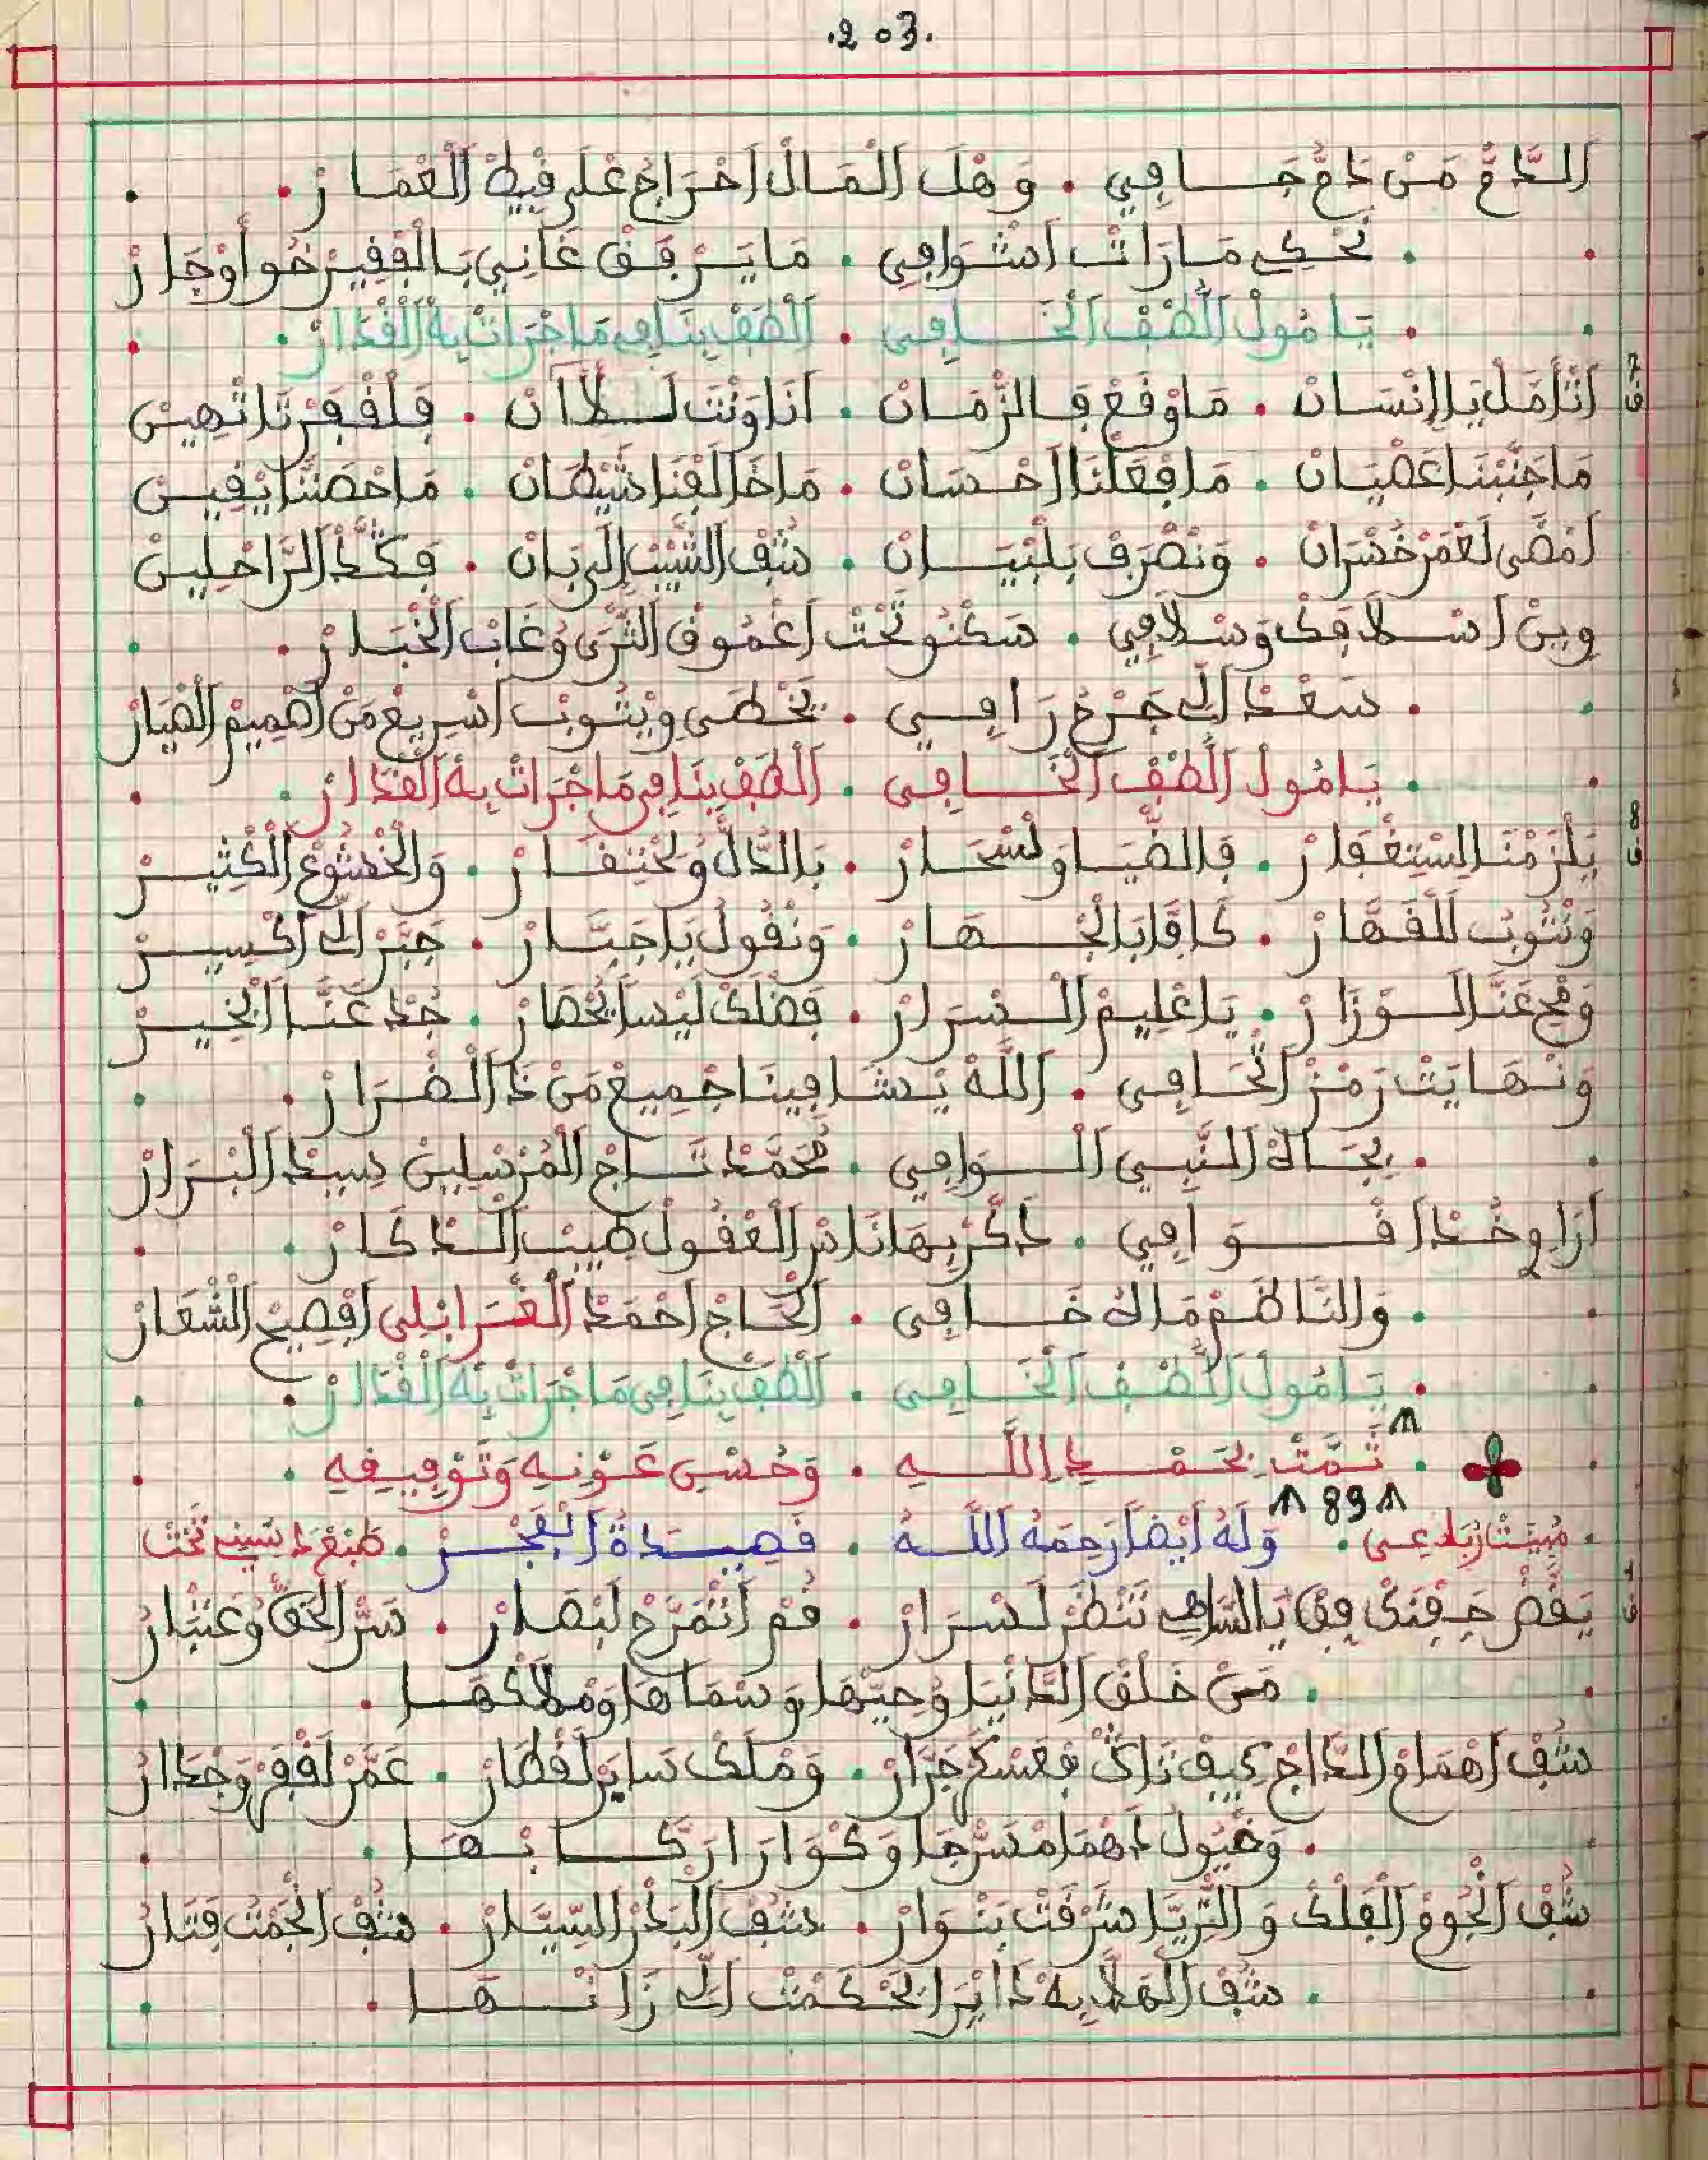 .203.
الدَّاعْ مَنْ دَاعْ جَافِي . وَهْلَ الْمَالْ اَخْرَاجْ عْلَى فِيهْ الْعْمَارْ .
نَحْكِي مَارَاتْ اَشْوَافِي . مَا يَرْفَقْ غَانِي بَالْفْقِيرْ خُو أَوْجَارْ
يَا مُولْ اللُّطْفْ الْخَافِي . اَلْطَفْ بِنَا فِي مَا جْرَاتْ بِهْ الْقْدَارْ .
ق7 اَتْأَمَّلْ يَا لِإنْسَانْ . مَا وْقَعْ فَالزّْمَانْ . اَنَا وَنْتَ لَلْآنْ . فَلْفْقَرْ تَايْهِينْ
مَا جَنَّبْنَا عَصْيَانْ . مَا فْعَلْنَا اَحْسَانْ . مَا خَالَفْنَا شِيطَانْ . مَا حْصَنَّا يْقِينْ
اَمْضَى لَعْمَرْ خُسْرَانْ . وَنْصْرَفْ بَلْبْيَانْ . شُفْ الشِّيبْ اِلَى بَانْ . فَكَّدْ الرَّاحْلِينْ
وِينْ اَسْلَافَكْ وَسْلَافِي . سَكْنُو تَحْتْ اَعْمُوقْ الثّْرَى وُغَابْ الْخْبَارْ .
سَعْدْ اَلِّي جَرْحُ رَافِي . يَخْطَى وِيْتُوبْ اَسْرِيعْ مَنْ اَصْمِيمْ الضْيَارْ
يَا مُولْ اللُّطْفْ الْخَافِي . اَلْطَفْ بِنَا فِي مَا جْرَاتْ بِهْ الْقْدَارْ .
ق8 يَلْزَمْنَا لِسْتِغْفَارْ . فَالضْيَا وَلَسْحَارْ . بَالدّْلُ وُلَحْتِقَارْ . وَالْخْشُوعْ الْكْثِيرْ
وَنْتُوبْ لَلْقَهَّارْ . كَافَّا بَالْجْهَارْ . وَنْقُولْ يَا جَبَّارْ . جَبَّرْ اَلِّي اَكْسِيرْ
وَمْحِ عَنَّا لَوْزَارْ . يَا عْلِيمْ السْرَارْ . فَضْلَكْ لَيْسَ يُحْصَارْ . جُدْ عَنَّا اَبْخِيرْ
وَنْهَايَتْ رَمْزْ الْحَافِي . اَللَّهْ يْشَافِينَا جْمِيعْ مَنْ دَا الضْرَارْ .
بِجَاهْ النّْبِي الْوَافِي . مُحَمَّدْ تَاجْ الْمُرْسَلِينْ سِيدْ الْبْرَارْ
اَرَاوِ خُدْ اَقْوَافِي . دَكَّرْ بِهَا نَاسْ الْعْقُولْ طِيبْ الدّْكَارْ .
وَالنَّاظَمْ مَا لُهْ خَافِي . اَلْحَاجْ اَحْمَدْ الْغْرَابْلِي اَفْصِيحْ الْشْعَارْ
يَا مُولْ اللُّطْفْ الْخَافِي . اَلْطَفْ بِنَا فِي مَا جْرَاتْ بِهْ الْقْدَارْ .
تَمَّتْ بِحَمْدِ اللَّهِ . وَحُسْنِ عَوْنِهِ وَتَوْفِيقِهِ .
89
. مْبِيَّتْ رْبَاعِي . وَلَهُ أَيْضاً رَحِمَهُ اللَّهُ . قَصِيدَةُ الْفْجَرْ . طَبْعْ
ق1 يَقَّضْ جَفْنَكْ فِقْ يَا السَّاهِي تَنْظَرْ لَسْرَارْ . قُمْ اَتْمَرَّحْ لَبْصَارْ . سَرّْ الْحَقّْ وَعْتْبَارْ
. مَنْ خَلْقْ الدَّنْيَا وُحِيّْهَا وَسْمَاهَا وَمْلَاكْهَا .
شُفْ اَهْمَامْ الدَّاجْ كِيفْ زَادْ فْعَسْكَرْ جَرَّارْ . وَمْلَكْ سَايَرْ لَقْطَارْ . عَمَّرْ لَقْفَرْ وَجْدَارْ
. وَخْيُولْ اَدْهَمَا مْسَرّْجَا وَكْوَارَا رَكَّابْهَا .
شُفْ اَنْجُومْ الْفَلْكْ وَالتُّرِيَّا شَرْقَتْ بَنْوَارْ . شُفْ الْبَدْرْ السِّيَّارْ . شُفْ اَنْجَمْتْ قِتَارْ
. شُفْ الْهْلَا بِهْ دَايْرَا بَحْكَمْتْ اَلِّي زَانْهَا .